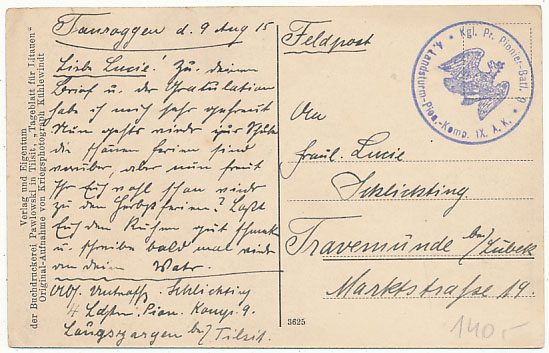 Tauroggen d. 9 Aug 15
Liebe Lucie! Zu deinem
Brief u. der Gratulation
hab ich mich sehr gefreut
Nun gehts wieder zur Schule
die schönen Ferien sind
vorüber, aber nun freut
Ihr Euch wohl schon wieder
zu den Herbstferien? Laßt
Euch den Kuchen gut schmecken
u. schreibe bald mal wieder
an deinen Vater.
Schlichting
4 Ldst. Pion. Komp. 9.
Laugszargen bei Tilsit.
Feldpost
An
Fräul. Lucie
Schlichting
Travemünde bei/Lübeck
Marktstraße 19.
Kgl. Pr. Pionier-Batl. 9
4. Landsturm-Pion.-Komp. IX. A. K.
Verlag und Eigentum
der Buchdruckerei Pawlowski in Tilsit, „Tageblatt für Litauen“
Original-Aufnahme von Kriegsphotograph Kühlewindt
3625
140,-